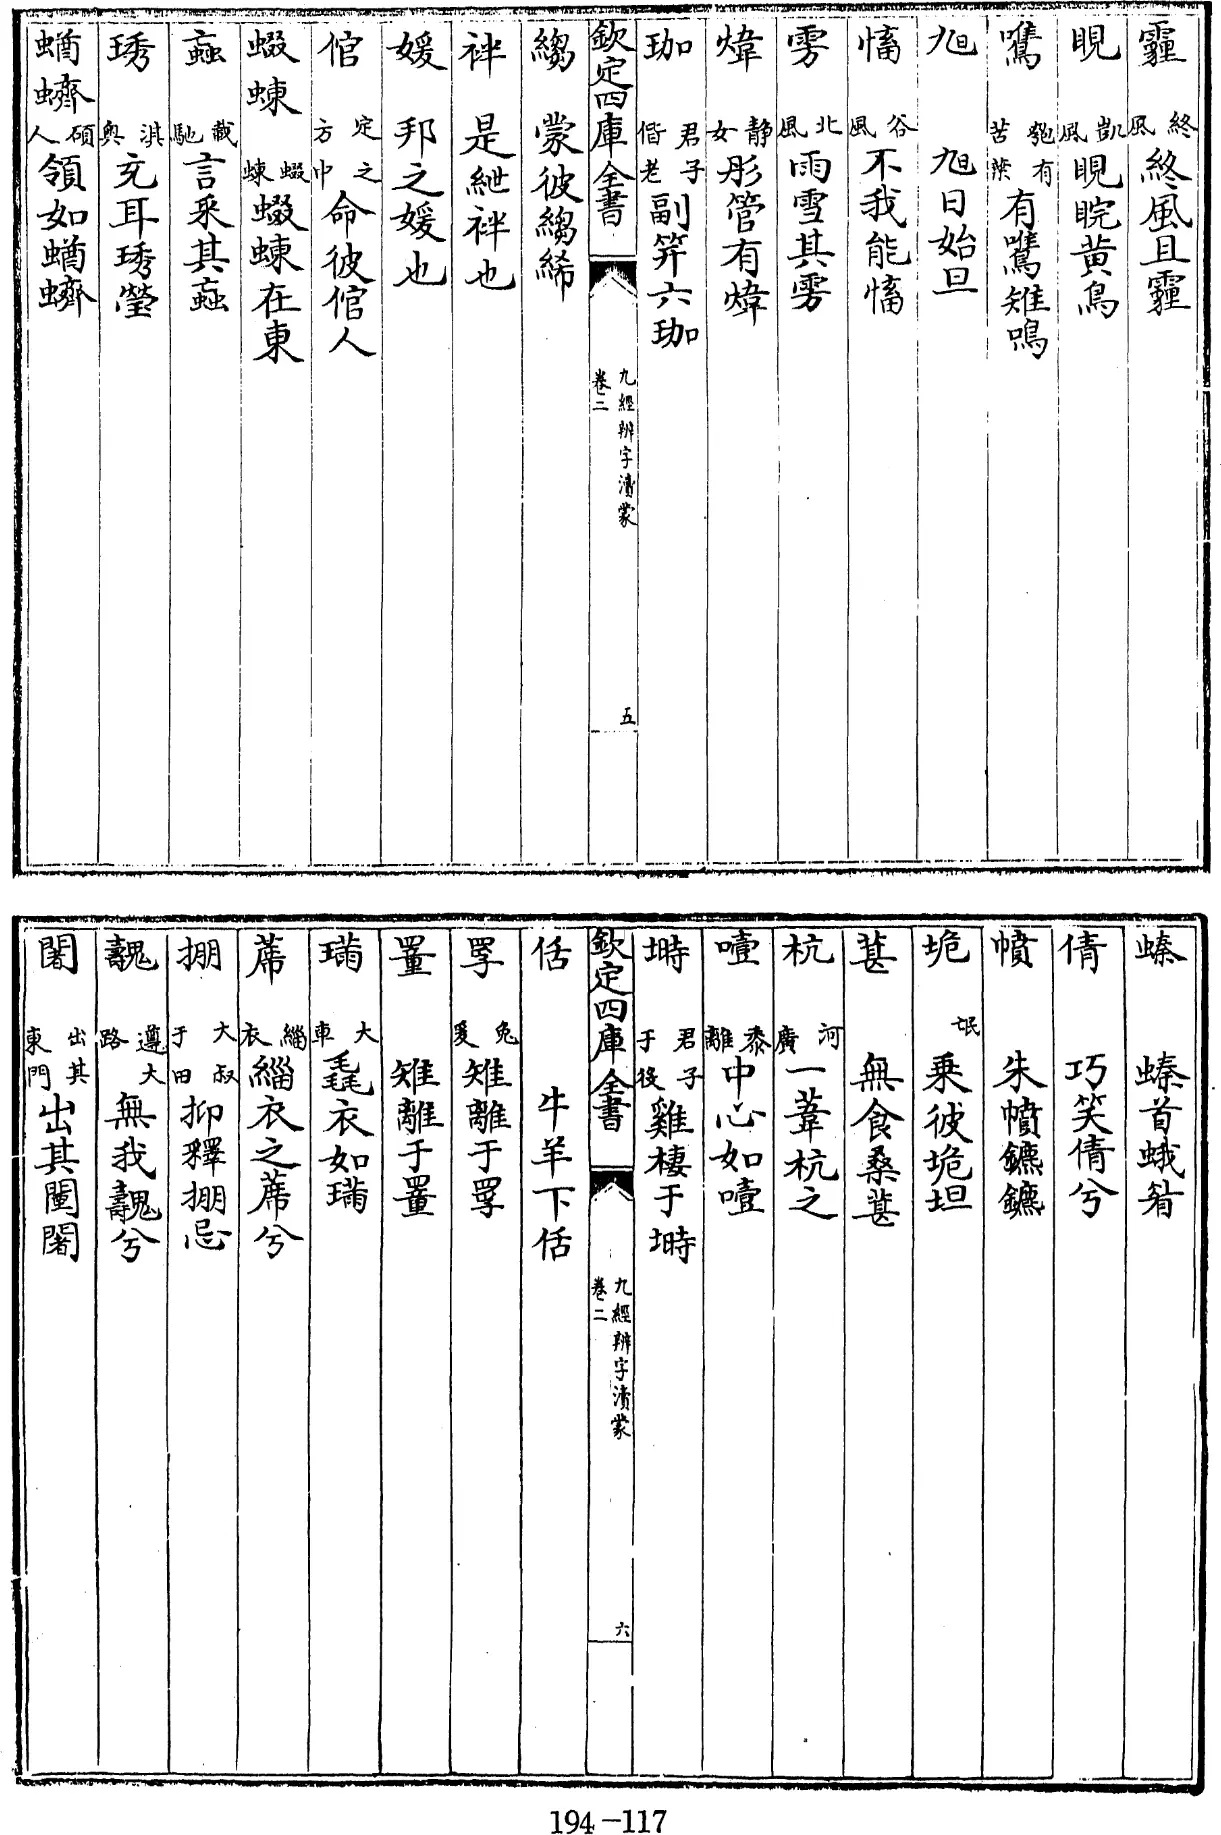 霾 終風 終風且霾
睍 凱風 睍睆黄鳥
鷕 匏有苦葉 有鷕雉鳴
旭 旭日始旦
慉 谷風 不我能慉
雱 北風 雨雪其雱
煒 静女 彤管有煒
珈 君子偕老 副笄六珈
欽定四庫全書
九經辨字瀆蒙
卷二
五
縐 蒙彼縐絺
袢 是紲袢也
媛 邦之媛也
倌 定之方中 命彼倌人
蝃蝀 蝃蝀 蝃蝀在東
蝱 載馳 言采其蝱
琇 淇奥 充耳琇瑩
蝤蠐 碩人 領如蝤蠐
螓 螓首蛾眉
倩 巧笑倩兮
幩 朱幩鑣鑣
垝 氓 乗彼垝垣
葚 無食桑葚
杭 河廣 一葦杭之
噎 黍離 中心如噎
塒 君子于役 雞棲于塒
欽定四庫全書
九經辨字瀆蒙
卷二
六
佸 牛羊下佸
罦 兔爰 雉離于罦
罿 雉離于罿
璊 大車 毳衣如璊
蓆 緇衣 緇衣之蓆兮
掤 大叔于田 抑釋掤忌
魗 遵大路 無我魗兮
闍 出其東門 出其闉闍
194-117